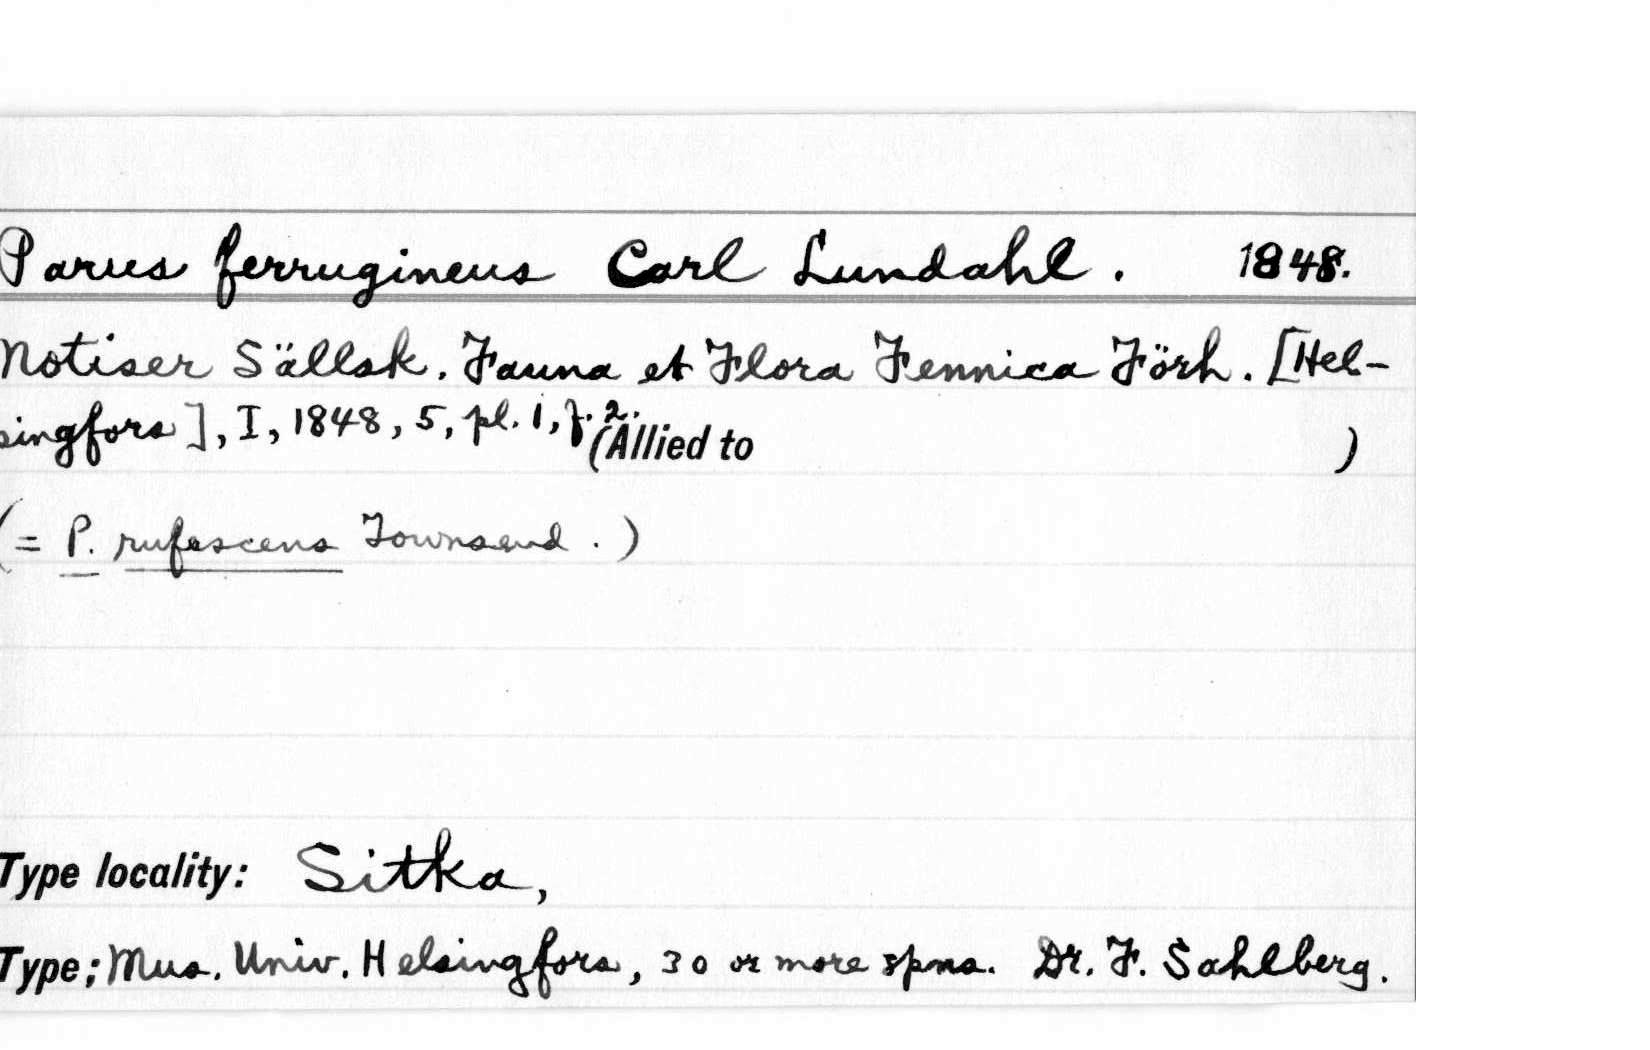 Parus ferrugineus Carl Lundahl. 1848.
Notiser Sällsk. Fauna et Flora Fennica Förh. [Hel-
singfors], I, 1848, 5, pl. 1, f. 2.
(Allied to )
(= P. rufescens Townsend.)
Type locality: Sitka,
Type; Mus. Univ. Helsingfors, 30 or more spms. Dr. F. Sahlberg.